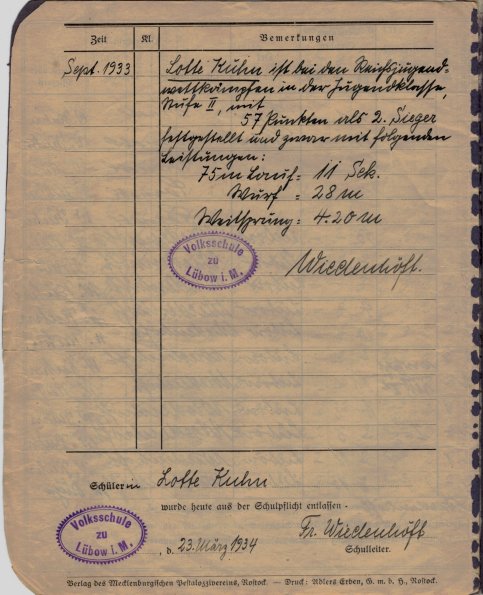 Zeit Kl. Bemerkungen
Sept. 1933 Lotte Kuhn ist bei den Reichsjugend=
wettkämpfen in der Jugendklasse,
Stufe II, mit
57 Punkten als 2. Sieger
festgestellt und zwar mit folgenden
Leistungen:
75 m Lauf = 11 Sek.
Wurf = 28 m
Weitsprung = 4.20 m
Volksschule
zu
Lübow i. M.
Wiedenhöft.
Schülerin Lotte Kuhn
wurde heute aus der Schulpflicht entlassen.
Volksschule
zu
Lübow i. M.
Fr. Wiedenhöft
, d. 23. März 1934
Schulleiter.
Verlag des Mecklenburgischen Pestalozzivereins, Rostock. — Druck: Adlers Erben, G. m. b. H., Rostock.